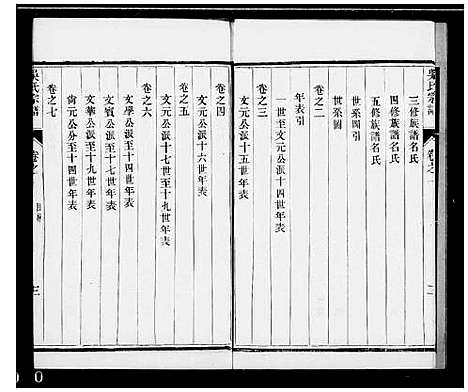 吳氏宗譜
卷之一
二
三修族譜名氏
四修族譜名氏
五修族譜名氏
世系圖引
世系圖
卷之二
年表引
一世至文元公派十四世年表
卷之三
文元公派十五世年表
卷之四
文元公派十六世年表
卷之五
文元公派十七世至十九世年表
卷之六
文學公派至十四世年表
文賓公派至十九世年表
文華公派至十九世年表
尚元公分至十四世年表
卷之七
吳氏宗譜
卷之一
三
0